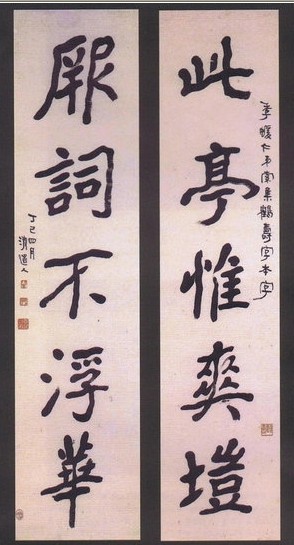 此亭惟爽塏
季暖仁弟索集鶴壽字本字
厥詞不浮華
丁巳四月
清道人